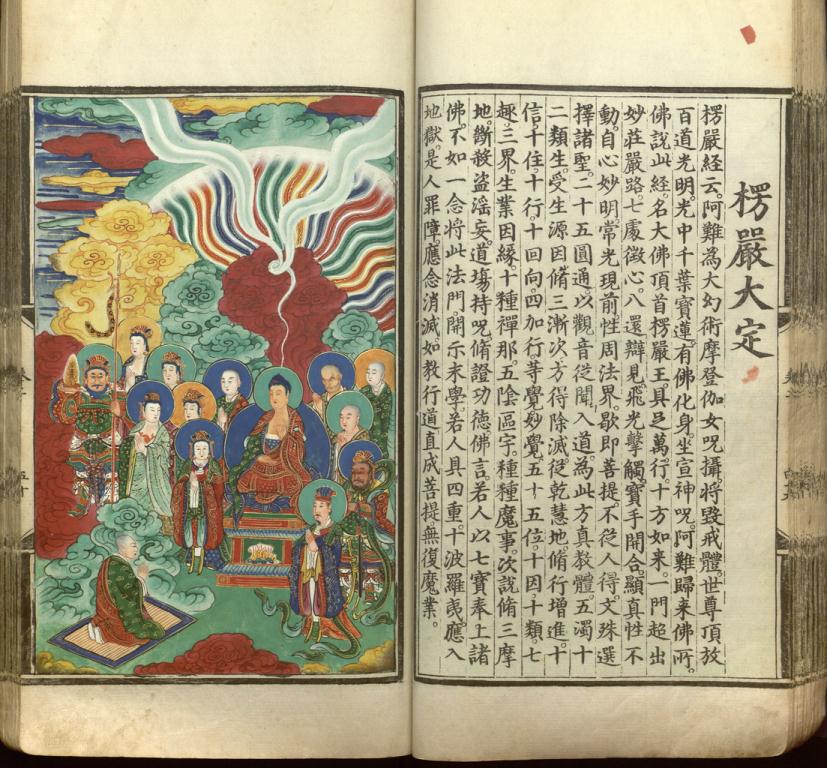 楞嚴大定
楞嚴経云。阿難為大幻術摩登伽女咒攝。將毀戒體。世尊頂放
百道光明。光中千葉寶蓮。有佛化身。坐宣神咒。阿難歸来佛所。
佛說此経。名大佛頂首楞嚴王。具足萬行。十方如来。一門超出
妙莊嚴路。七處徵心。八還辯見。飛光擊觸。寶手開合。顯真性不
動。自心妙明。常光現前。性周法界。歇即菩提。不從人得。文殊選
擇諸聖。二十五圓通。以觀音從聞入道。為此方真教體。五濁十
二類生。受生源因。脩三漸次。方得除滅。從乾慧地。脩行增進。十
信千住。十行。十回向。四加行。等覺妙覺。五十五位。十因十類七
趣三界。生業因緣。十種禪那。五陰區宇。種種魔事。次說脩三摩
地。斷殺盜滛妄。道塲持咒。脩證功德。佛言。若人以七寶奉上諸
佛。不如一念將此法門。開示末學。若人具四重。十波羅夷。應入
地獄。是人罪障。應念消滅。如教行道。直成菩提。無復魔業。